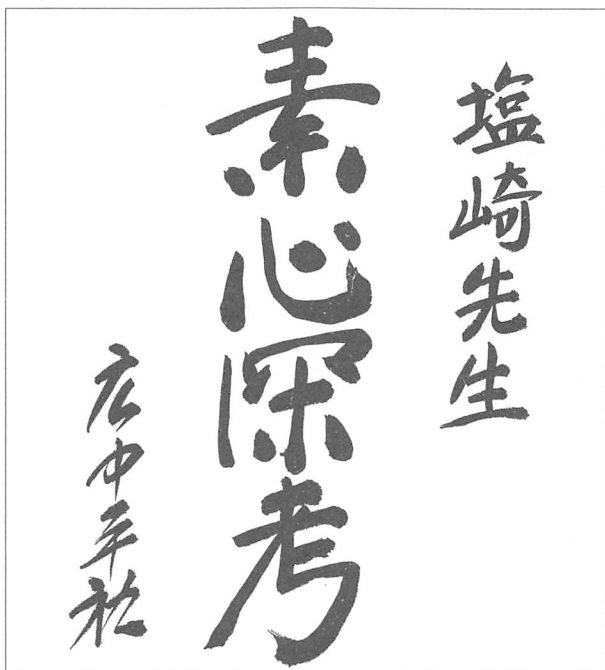 塩崎先生
素心深考
広中平祐